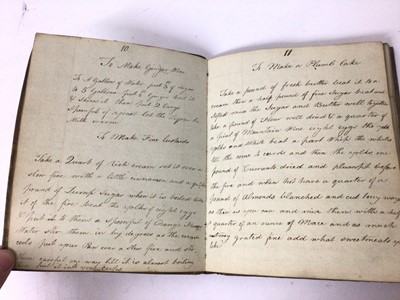 10
To Make Ginger Wine
To A Gallon of Water put of sugar
to 5 Gallons put of ginger beat it
& then put 2 large
Spoonfuls of yeast let the liquor be
Milk warm
To Make Fine Custards
Take a Quart of Rich cream set it over a
slow fire with a little cinnamon and a
pound of Lump Sugar when it is boiled take
it of the fire beat the yolks of eight eggs
& put in to them a Spoonful of Orange flower
Water stir them in by degrees as the cream
cools put your Pan over a Slow fire and stir
them careful one way till it is almost boiling
put it into your cups
11
To Make a Plumb Cake
Take a pound of fresh butter beat it to a
cream then a half pound of fine Sugar beat and
sifted mix the Sugar and Butter well together
take a pound of Flour well dried & a quarter of
a pint of Mountain Wine eight eggs the
yolks and Whites beat a part whip the whites
let the wine & and then the yolks a
pound of Currants dried and plump'd before
the fire and when hot have a quarter of a
pound of Almonds blanched and cut long ways
as thin as you can and mix them with a half
a quarter of an ounce of Mace and as much
Nutmeg grated fine add what sweetmeats you
like